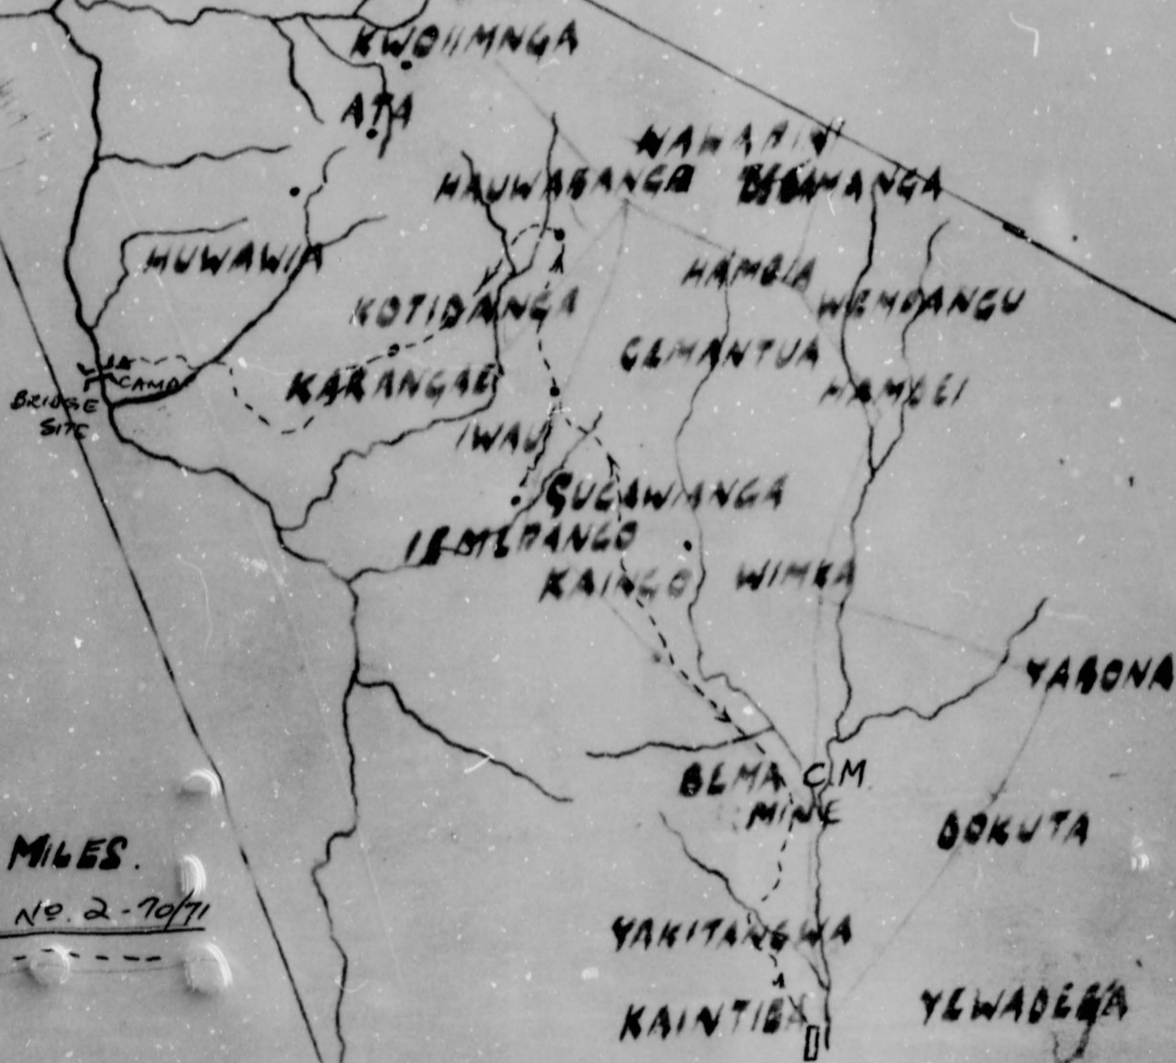 KWOIIMNGA
ATA
WAWARINI
HAUWABANGA
MANGA
HUWAWIA
HAMBIA
KOTIDANGA
WEMDANGU
GEMANTUA
KARANGAEI
CAMP
BRIDGE
SITE
HAMDEI
IWAU
GUGAWIANGA
KAINGO
WIMKA
YABONA
BEMA C.M.
MINE
DOKUTA
MILES.
No. 2-70/71
YAKITANGWA
KAINTIBA
YEWADEGA